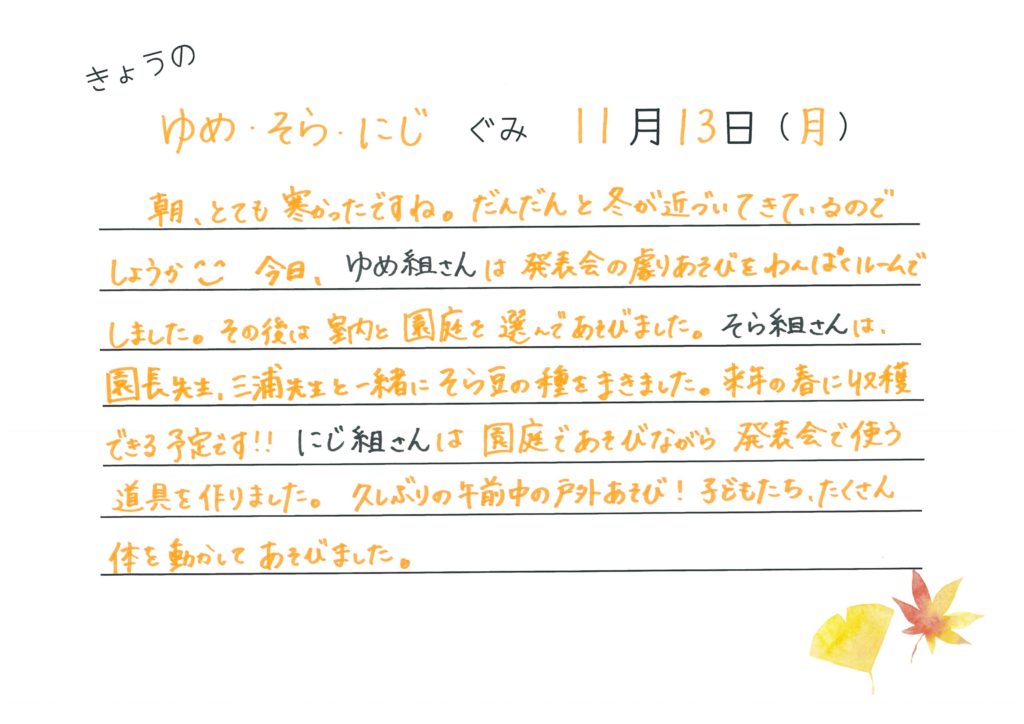 きょうの
ゆめ・そら・にじ ぐみ 11月13日(月)
朝、とても寒かったですね。だんだんと冬が近づいてきているので
しょうか^^ 今日、ゆめ組さんは発表会の劇りあそびをわんぱくルームで
しました。その後は室内と園庭を選んであそびました。そら組さんは、
園長先生、三浦先生と一緒にそら豆の種をまきました。来年の春に収穫
できる予定です!! にじ組さんは園庭であそびながら発表会で使う
道具を作りました。久しぶりの午前中の戸外あそび!子どもたち、たくさん
体を動かしてあそびました。